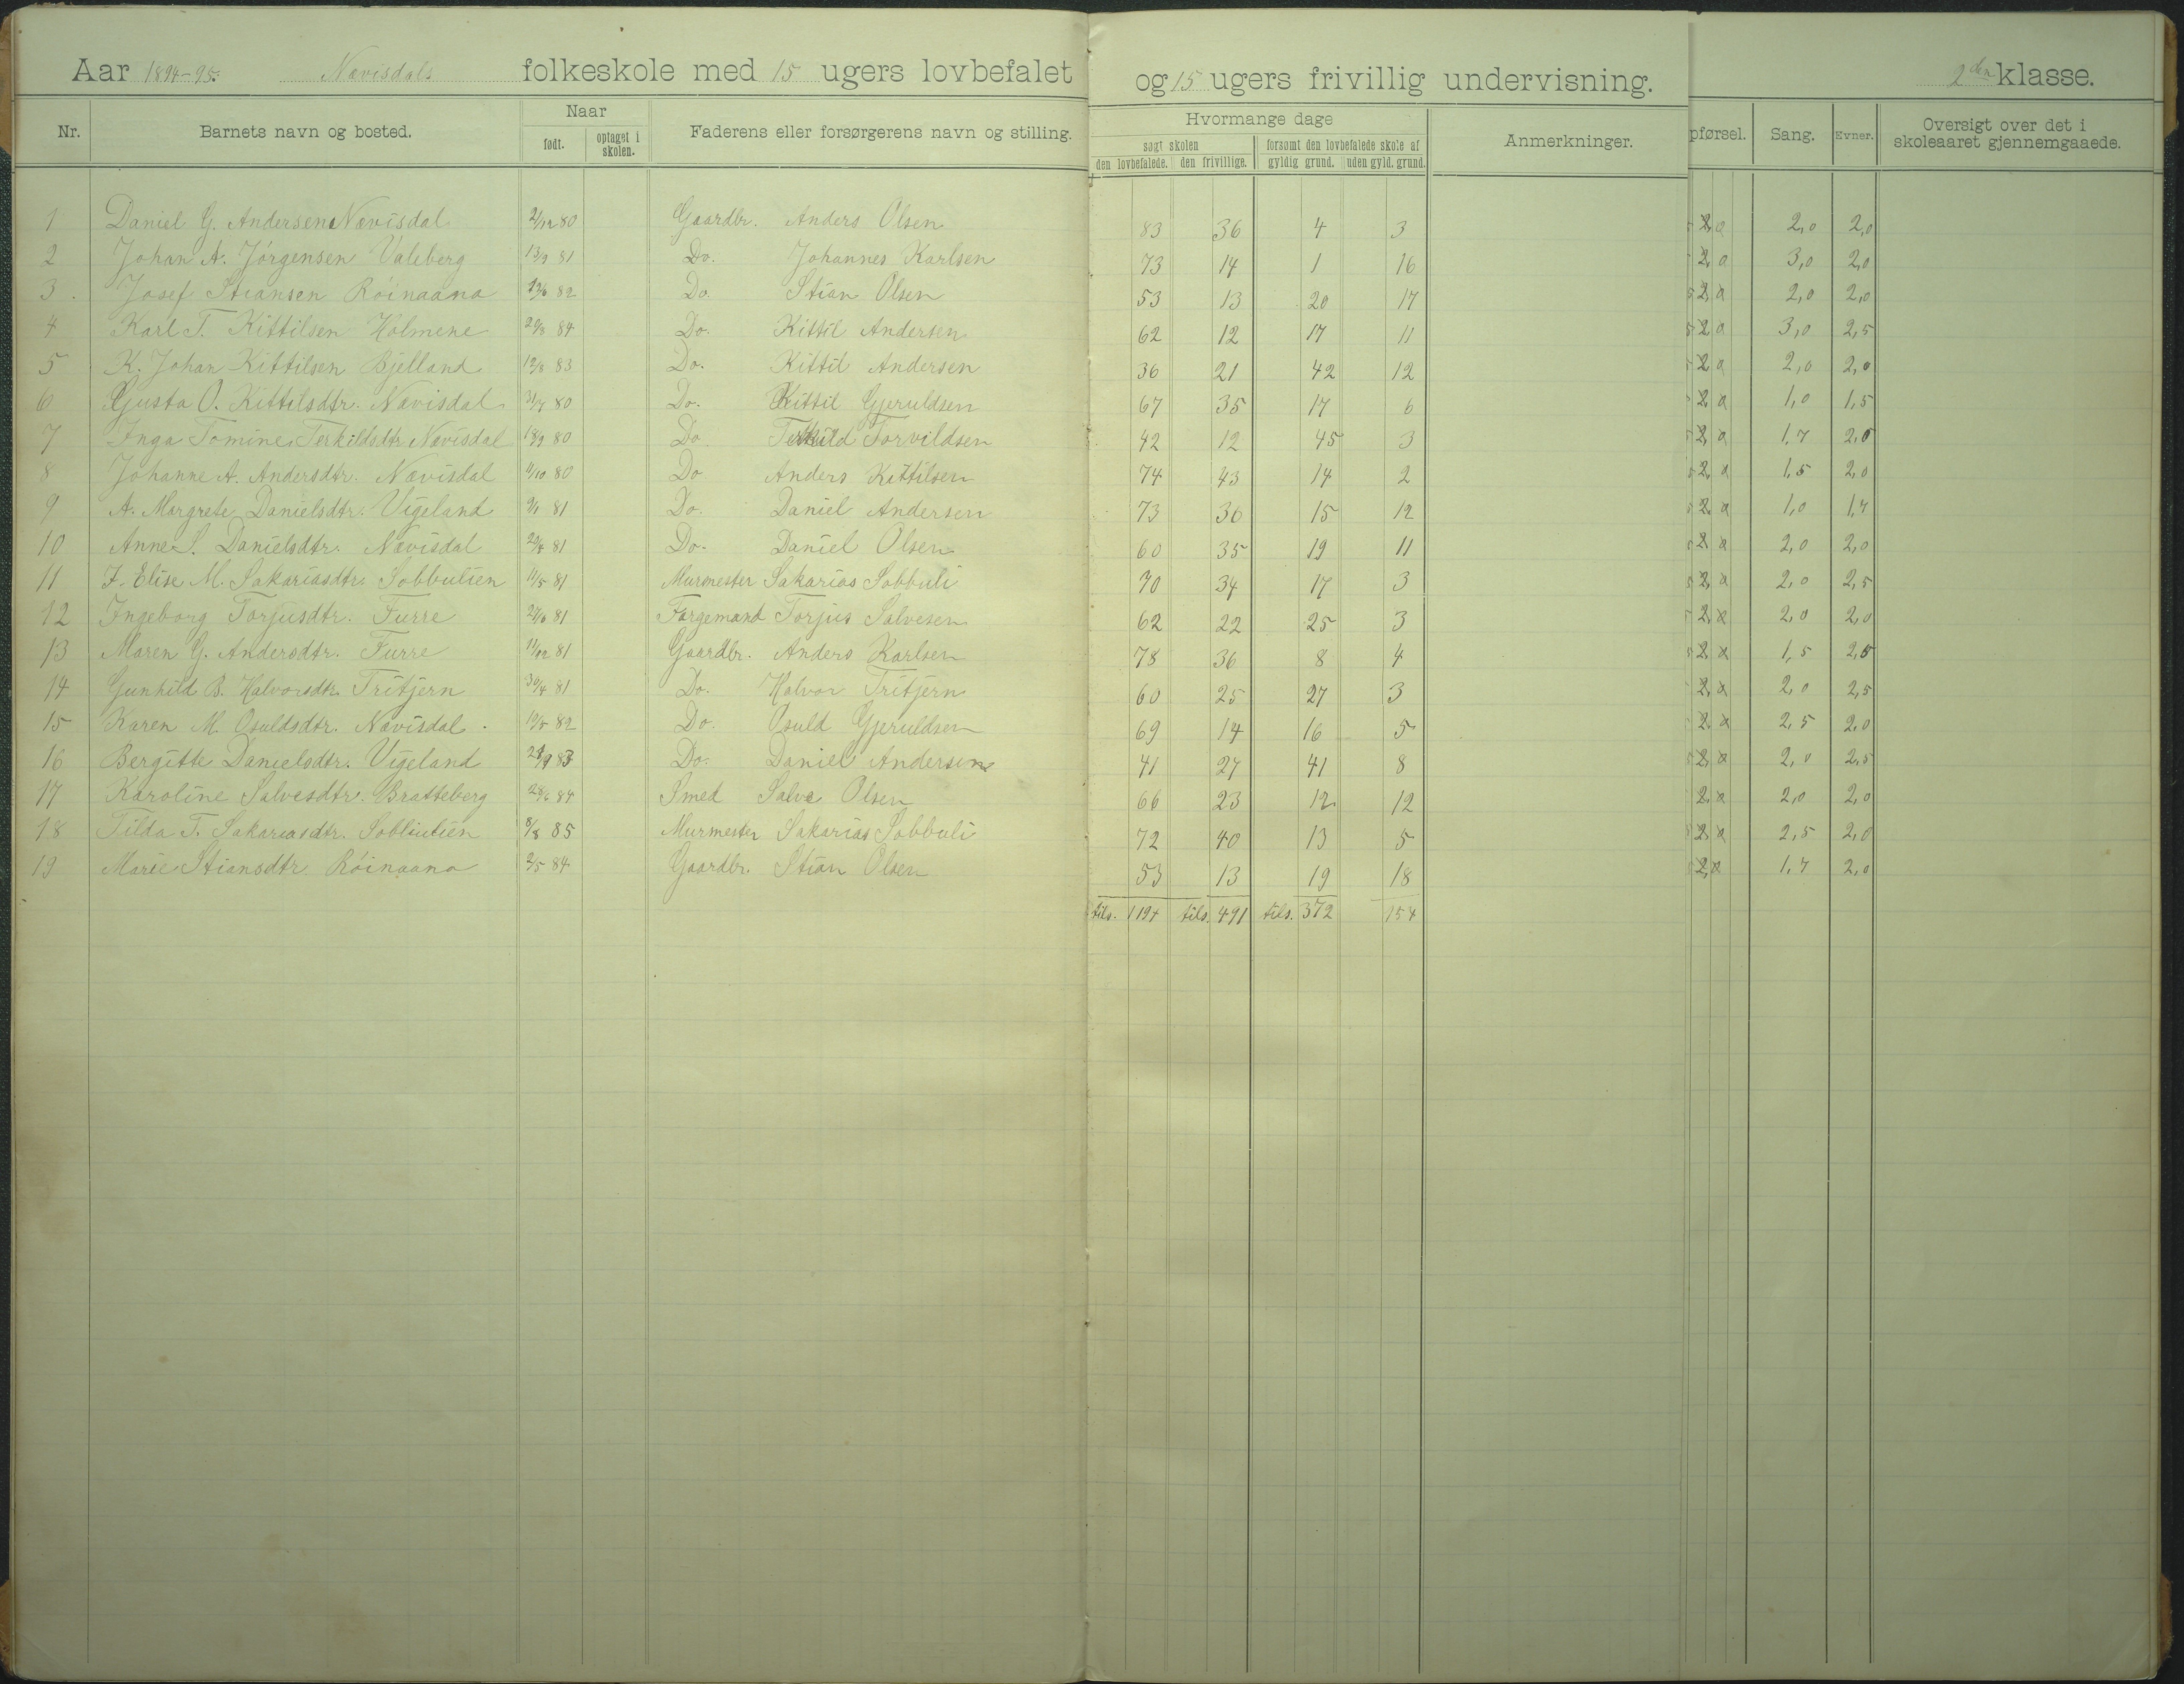 Aar 1894-95. Nævisdals folkeskole med 15 ugers lovbefalet og 15 ugers frivillig undervisning. 2den klasse.
Nr. Barnets navn og bosted. Naar født. optaget i skolen. Faderens eller forsørgerens navn og stilling. Hvormange dage søgt skolen den lovbefalede. den frivillige. forsømt den lovbefalede skole af gyldig grund. uden gyld. grund. Anmerkninger. pførsel. Sang. Evner. Oversigt over det i skoleaaret gjennemgaaede.
1 Daniel G. Andersen Nævisdal 2/12 80 Gaardbr. Anders Olsen 83 36 4 3 2,0 2,0
2 Johan A. Jörgensen Valeberg 13/9 81 Do. Johannes Karlsen 73 14 1 16 3,0 2,0
3. Josef Stiansen Röinaana 82 Do. Stian Olsen 53 13 20 17 2,0 2,0
4 Karl T. Kittilsen Holmene 29/8 84 Do. Kittil Andersen 62 12 17 11 3,0 2,5
5 K. Johan Kittilsen Bjelland 12/8 83 Do. Kittil Andersen 36 21 42 12 2,0 2,0
6 Gusta O. Kittilsdtr. Nævisdal 31/7 80 Do. Kittil Gjeruldsen 67 35 17 6 1,0 1,5
7 Inga Tomine Terkildsdtr Nævisdal 18/9 80 Do Terkild Torvildsen 42 12 45 3 1,7 2,0
8 Johanne A. Andersdtr. Nævisdal 11/10 80 Do Anders Kittilsen 74 43 14 2 1,5 2,0
9 A. Margrete Danielsdtr. Vigeland 9/1 81 Do. Daniel Andersen 73 36 15 12 1,0 1,7
10 Anne S. Danielsdtr. Nævisdal 81 Do. Daniel Olsen 60 35 19 11 2,0 2,0
11 J. Elise M. Sakariasdtr. Sobbulien 11/5 81 Murmester Sakarias Sobbuli 70 34 17 3 2,0 2,5
12 Ingeborg Torjusdtr. Furre 27/6 81 Forgemand Torjus Salvesen 62 22 25 3 2,0 2,0
13 Maren G. Andersdtr. Furre 11/12 81 Gaardbr. Anders Karlsen 78 36 8 4 1,5 2,5
14 Gunhild B. Halvorsdtr. Tritjern 30/4 81 Do. Halvor Tritjern 60 25 27 3 2,0 2,5
15 Karen M. Osuldsdtr. Nævisdal. 19/5 82 Do. Osuld Gjeruldsen 69 14 16 5 2,5 2,0
16 Bergitte Danielsdtr. Vigeland 83 Do. Daniel Andersen 41 27 41 8 2,0 2,5
17 Karoline Salvesdtr. Bratteberg 28/6 84 Smed Salve Olsen 66 23 12 12 2,0 2,0
18 Tilda T. Sakariasdtr. Sobbulien 8/8 85 Murmester Sakarias Sobbuli 72 40 13 5 2,5 2,0
19 Marie Stiansdtr. Röinaana 2/5 84 Gaardbr. Stian Olsen 53 13 19 18 1,7 2,0
tils. 1194 tils. 491 tils. 372 154